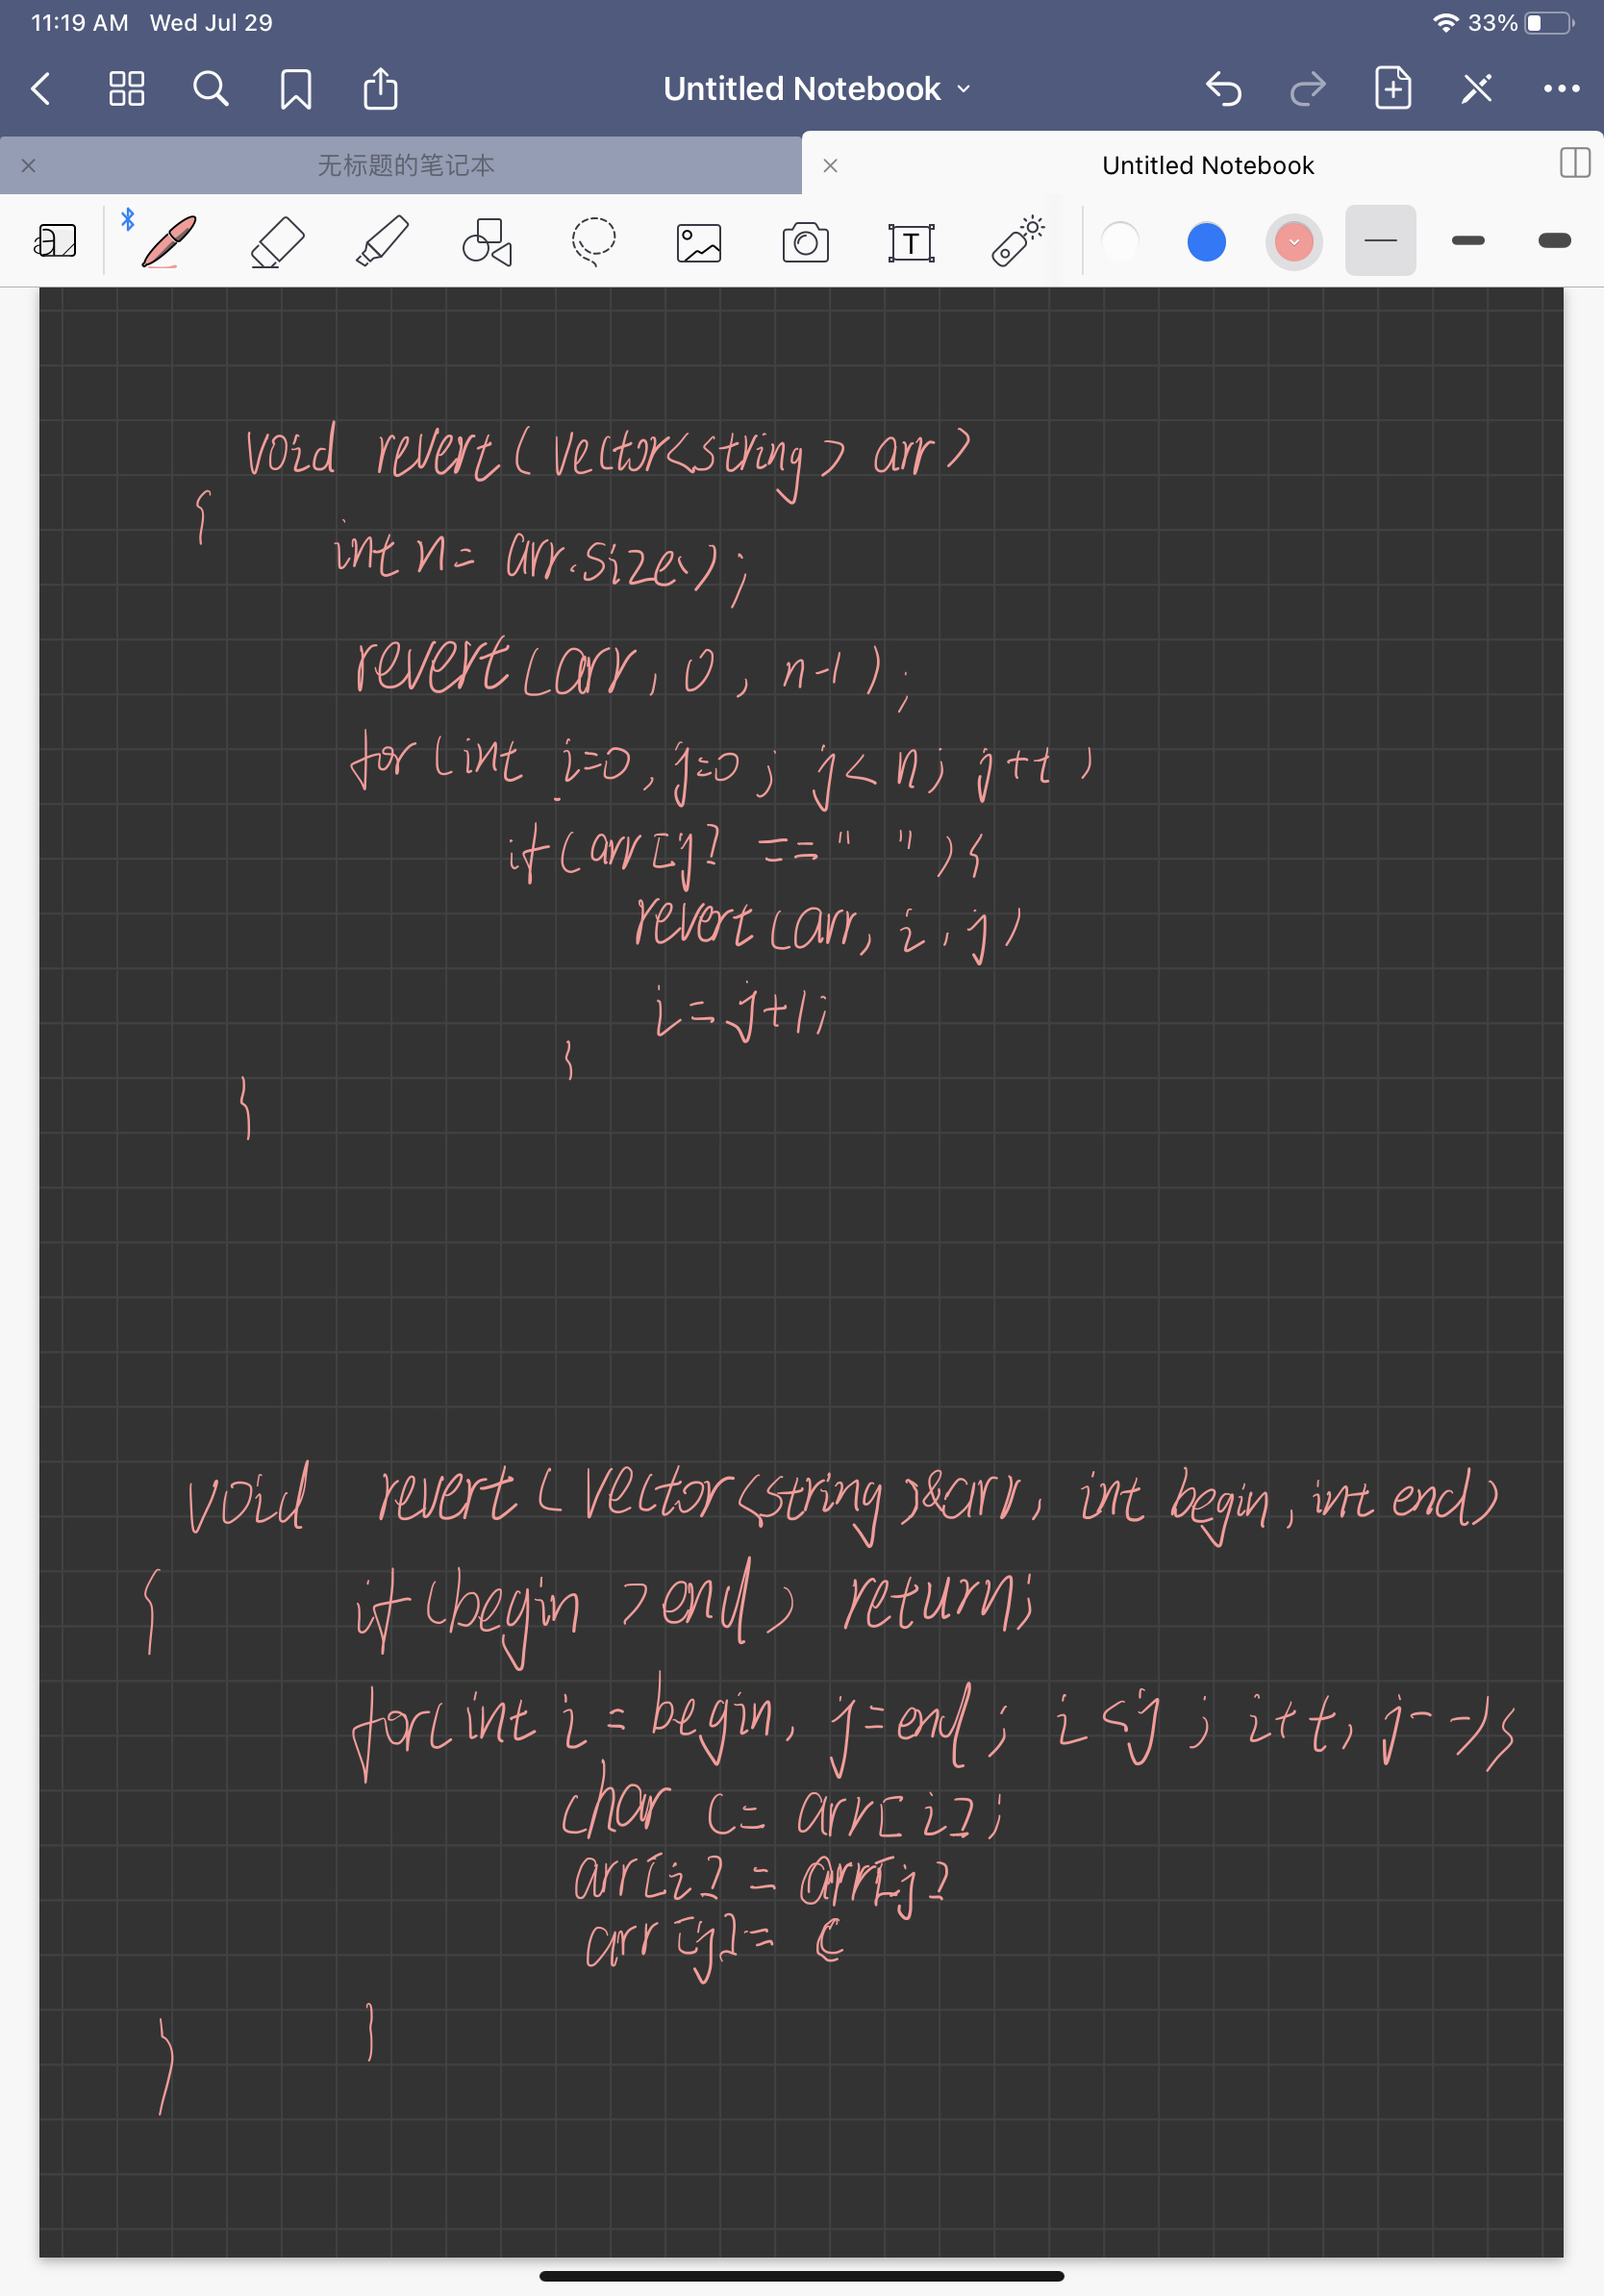 11:19 AM Wed Jul 29 33%
Untitled Notebook
无标题的笔记本 Untitled Notebook
T
void revert(vector<string> arr)
{
int n= arr.size();
revert(arr, 0, n-1);
for(int i=0, j=0; j<n; j++)
if(arr[j] ==" "){
revert(arr, i, j)
i=j+1;
}
}
void revert(vector<string>&arr, int begin, int end)
{ if(begin >end) return;
for(int i = begin, j=end; i<j; i++, j--){
char c= arr[i];
arr[i] = arr[j]
arr[j]= c
}
}